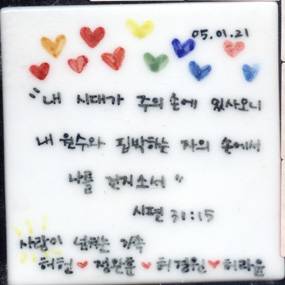 05.01.21
"내 시대가 주의 손에 있사오니
내 원수와 핍박하는 자의 손에서
나를 건지소서"
시편 31:15
사랑이 넘치는 가족
허헌 ♥ 정완륜 ♥ 허결원 ♥ 허라윤